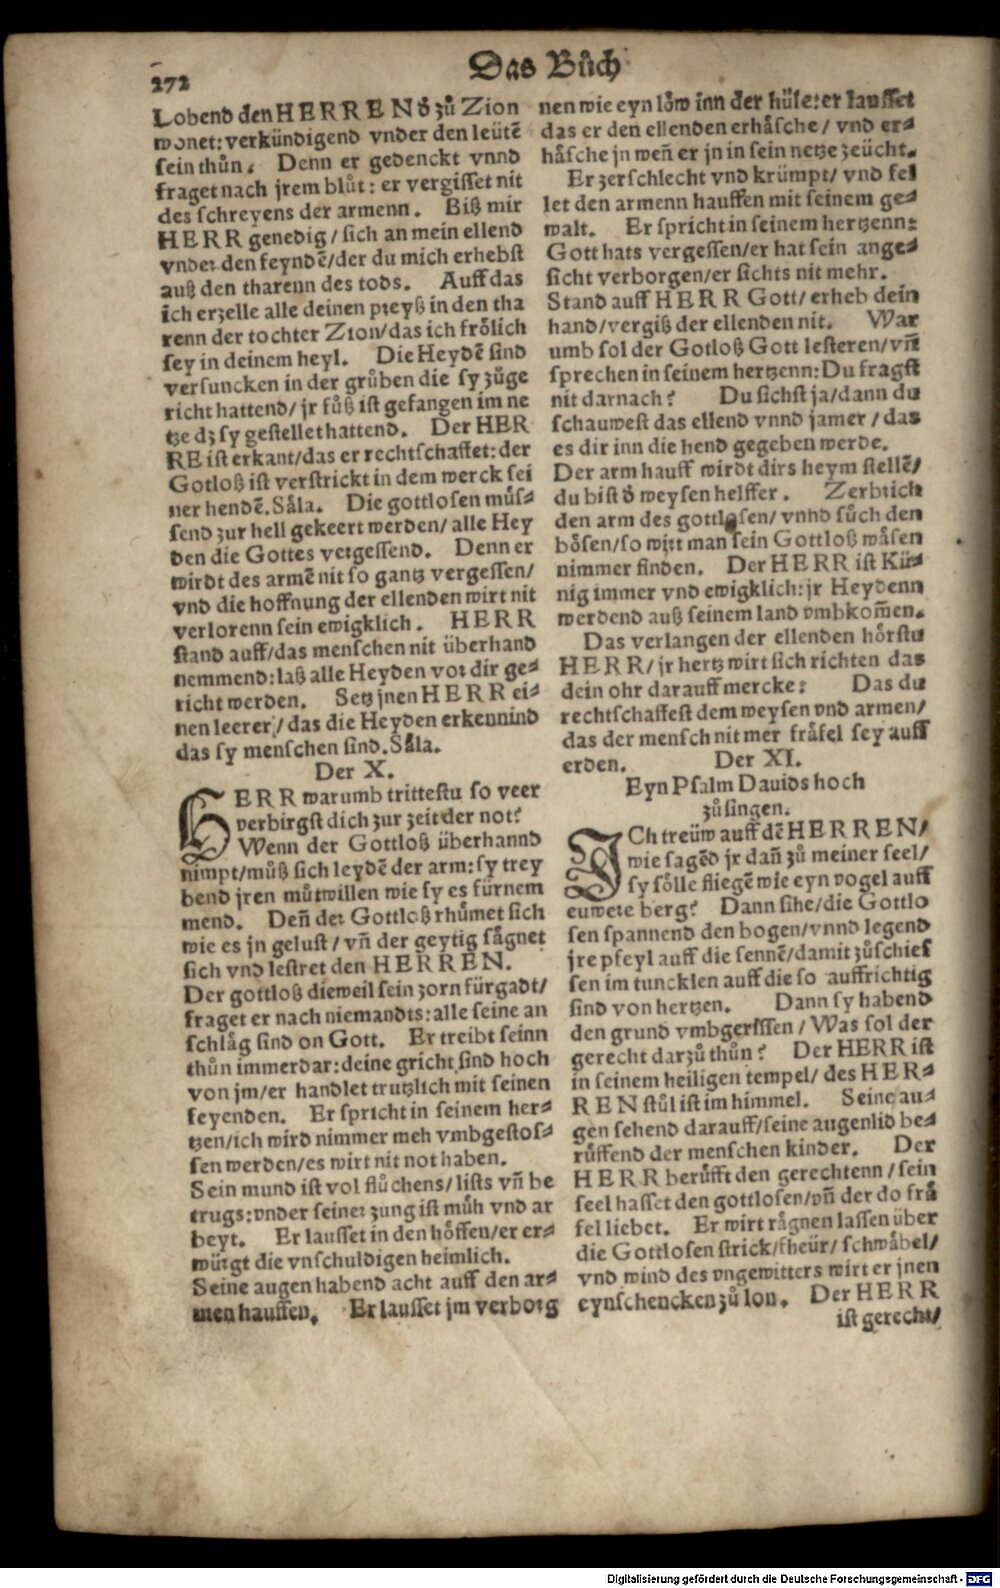 272
Das Bůch
Lobend den HERREN ð zů Zion
wonet: verkündigend vnder den leütẽ
sein thůn. Denn er gedenckt vnnd
fraget nach jrem blůt: er vergisset nit
des schreyens der armenn. Biß mir
HERR genedig / sich an mein ellend
vnder den feyndẽ / der du mich erhebst
auß den tharenn des tods. Auff das
ich erzelle alle deinen preyß in den tha
renn der tochter Zion / das ich frölich
sey in deinem heyl. Die Heydẽ sind
versuncken in der grůben die sy zůge
richt hattend / jr fůß ist gefangen im ne
tze dz sy gestellet hattend. Der HER
RE ist erkant / das er recht schaffet: der
Gotloß ist verstrickt in dem werck sei
ner hendẽ. Såla. Die gottlosen můs⸗
send zur hell gekeert werden / alle Hey
den die Gottes vergessend. Denn er
wirdt des armẽ nit so gantz vergessen /
vnd die hoffnung der ellenden wirt nit
verlorenn sein ewigklich. HERR
stand auff / das menschen nit überhand
nemmend: laß alle Heyden vor dir ge⸗
richt werden. Setz jnen HERR ei⸗
nen leerer / das die Heyden erkennind
das sy menschen sind. Såla.
Der X.
HERR warumb trittestu so veer
verbirgst dich zur zeit der not?
Wenn der Gottloß überhannd
nimpt / můß sich leydẽ der arm: sy trey
bend jren můtwillen wie sy es fürnem
mend. Deñ der Gottloß rhůmet sich
wie es jn gelust / vñ der geytig sågnet
sich vnd lestret den HERREN.
Der gottloß dieweil sein zorn fürgadt /
fraget er nach niemandts: alle seine an
schlåg sind on Gott. Er treibt seinn
thůn immerdar: deine gricht sind hoch
von jm / er handlet trutzlich mit seinen
feyenden. Er spricht in seinem her⸗
tzen / ich wird nimmer meh vmbgestos⸗
sen werden / es wirt nit not haben.
Sein mund ist vol flůchens / lists vñ be
trugs: vnder seiner zung ist můh vnd ar
beyt. Er lausset in den höffen / er er⸗
würgt die vnschuldigen heimlich.
Seine augen habend acht auff den ar⸗
men hauffen. Er lausset jm verborg
nen wie eyn löw inn der hüle: er lausset
das er den ellenden erhåsche / vnd er⸗
håsche jn weñ er jn in sein netze zeücht.
Er zerschlecht vnd krümpt / vnd fel
let den armenn hauffen mit seinem ge⸗
walt. Er spricht in seinem hertzenn:
Gott hats vergessen / er hat sein ange⸗
sicht verborgen / er sichts nit mehr.
Stand auff HERR Gott / erheb dein
hand / vergiß der ellenden nit. War
umb sol der Gotloß Gott lesteren / vñ
sprechen in seinem hertzenn: Du fragst
nit darnach? Du sichst ja / dann du
schauwest das ellend vnnd jamer / das
es dir inn die hend gegeben werde.
Der arm hauff wirdt dirs heym stellẽ /
du bist ð weysen helffer. Zerbrich
den arm des gottlosen / vnnd sůch den
bösen / so wirt man sein Gottloß wåsen
nimmer finden. Der HERR ist Kü⸗
nig immer vnd ewigklich: jr Heydenn
werdend auß seinem land vmbkom̃en.
Das verlangen der ellenden hörstu
HERR / jr hertz wirt sich richten das
dein ohr darauff mercke: Das du
rechtschaffest dem weysen vnd armen /
das der mensch nit mer fråfel sey auff
erden. Der XI.
Eyn Psalm Dauids hoch
zů singen.
ICh treüw auff dẽ HERREN /
wie sagẽd jr dañ zů meiner seel /
sy sölle fliegẽ wie eyn vogel auff
euwere berg? Dann sihe / die Gottlo
sen spannend den bogen / vnnd legend
jre pfeyl auff die sennẽ / damit zůschies
sen im tuncklen auff die so auffrichtig
sind von hertzen. Dann sy habend
den grund vmbgerissen / Was sol der
gerecht darzů thůn? Der HERR ist
in seinem heiligen tempel / des HER⸗
REN stůl ist im himmel. Seine au⸗
gen sehend darauff / seine augenlid be⸗
rüffend der menschen kinder. Der
HERR berůfft den gerechtenn / sein
seel hasset den gottlosen / vñ der do frå
fel liebet. Er wirt rågnen lassen über
die Gottlosen strick / fheür / schwåbel /
vnd wind des vngewitters wirt er jnen
eynschencken zů lon. Der HERR
ist gerecht /
Digitalisierung gefördert durch die Deutsche Forschungsgemeinschaft - DFG